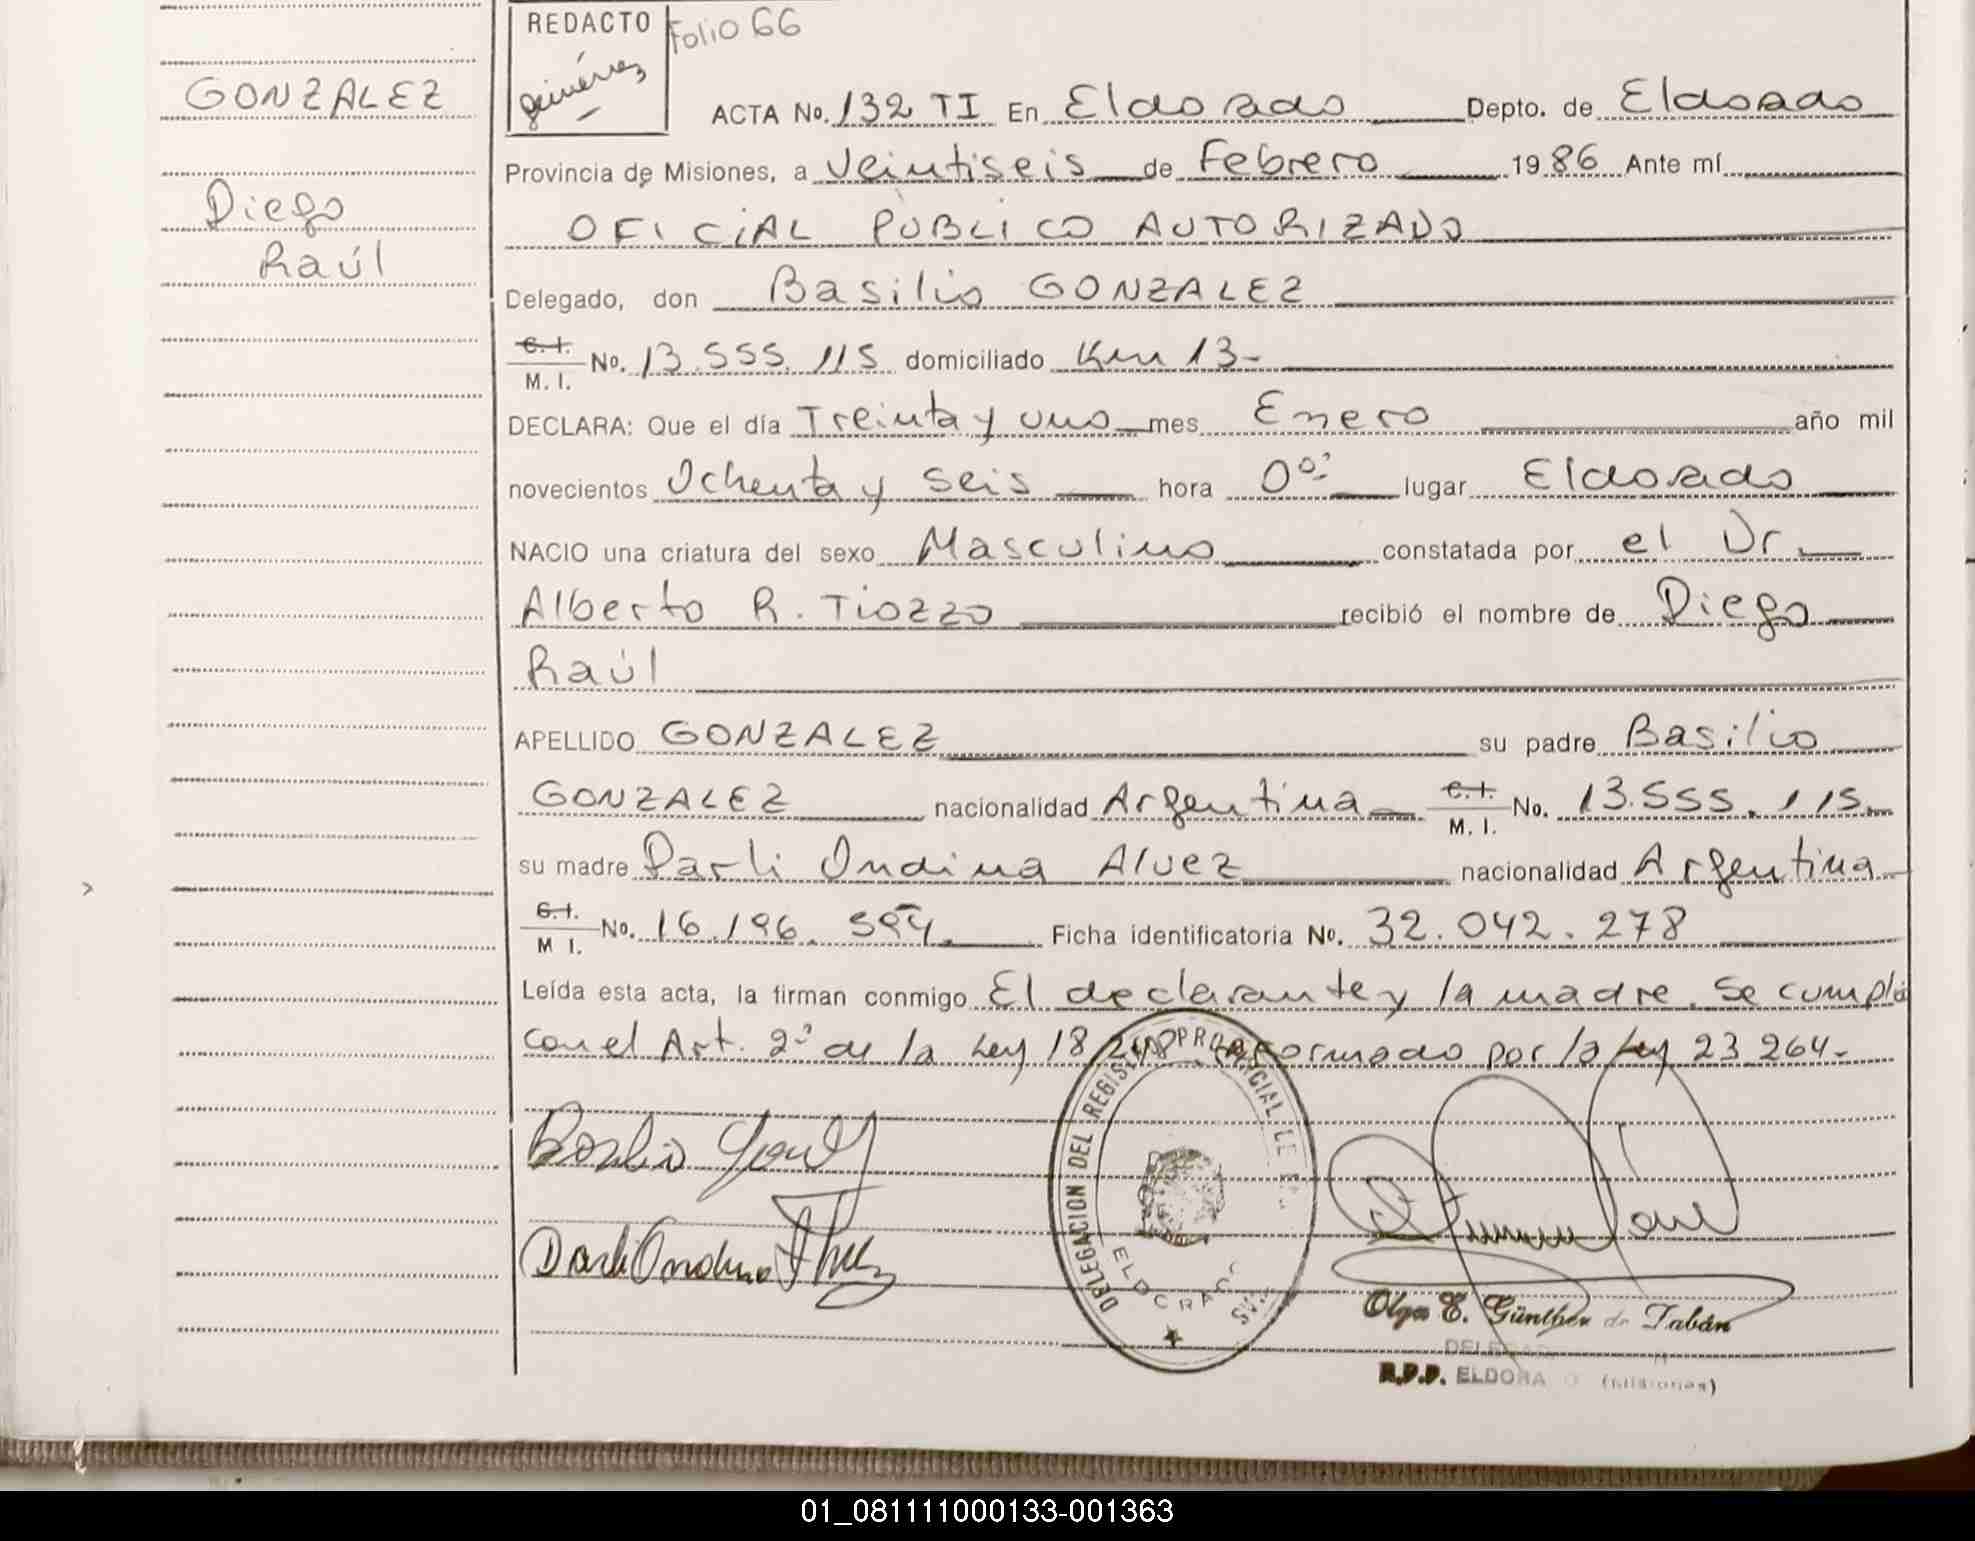 REDACTO
Folio 66
GONZALEZ
Diego
Raúl
ACTA No. 132 TI En Eldorado Depto. de Eldorado
Provincia de Misiones, a Veintiseis de Febrero 1986 Ante mí
OFICIAL PUBLICO AUTORIZADO
Delegado, don Basilio GONZALEZ
C. I. M. I. No. 13.555.115 domiciliado Km 13-
DECLARA: Que el día Treinta y uno mes Enero año mil
novecientos Ochenta y seis hora lugar Eldorado
NACIO una criatura del sexo Masculino constatada por el Dr.
Alberto R. Tiozzo recibió el nombre de Diego
Raúl
APELLIDO GONZALEZ su padre Basilio
GONZALEZ nacionalidad Argentina C. I. M. I. No. 13.555.115.
su madre Darli Ondina Alvez nacionalidad Argentina
C. I. M I. No. 16.196. Ficha identificatoria No. 32.042.278
Leída esta acta, la firman conmigo El declarante y la madre. Se cumplió
con el Art. 2º de la Ley 18.248 reformado por la Ley 23.264-
DELEGACION DEL REGISTRO PROVINCIAL DE LAS
ELDORADO
Darli Ondina Alvez
Olga E. Günther de Tabán
DELEGADA
R.P.P. ELDORADO (Misiones)
01_081111000133-001363